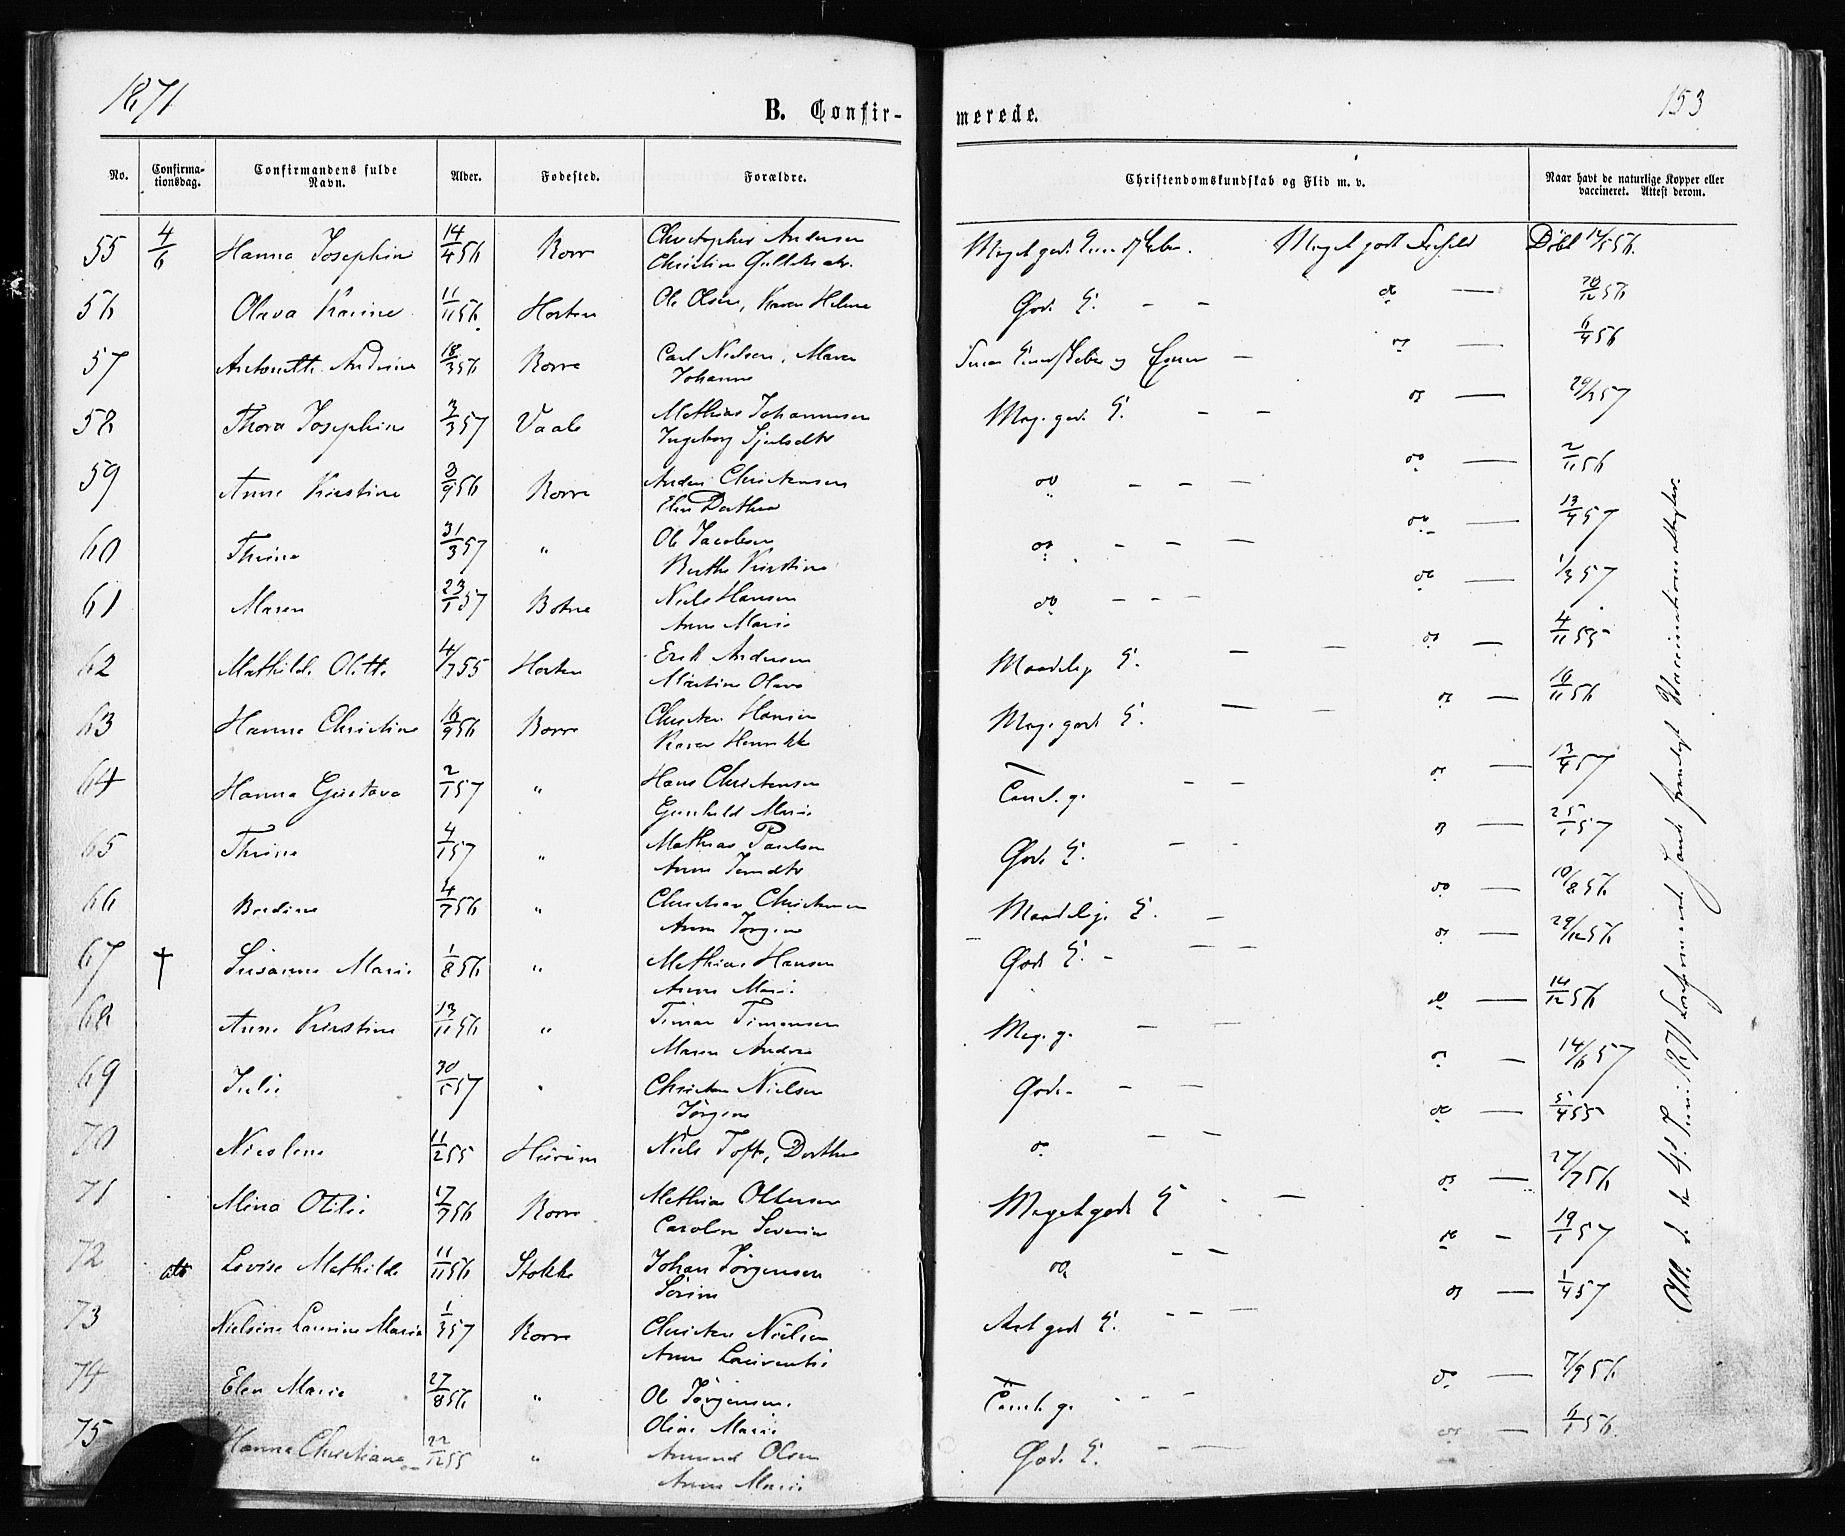 1871
B. Confir-
merede.
153
No.
Confirma-
tionsdag.
Confirmandens fulde
Navn.
Alder.
Fødested.
Forældre.
Christendomskundskab og Flid m. v.
Naar havt de naturlige Kopper eller
vaccineret. Attest derom.
55 4/6 Hanna Josephine 14/4 56 Borre Christopher Andersen Meget god Meget godt Forhold Døbt
Christine
56 Olava Karine 11/11 56 Horten Ole Olsen, Karen Helene Gode K. — — do — 56
57 Antonette Andrine 18/3 56 Borre Carl Nielsen, Maren — do — 6/4 56
Johanne
58 Thora Josephine 3/3 57 Vaale Mathias Johannesen Meg. god. K. — — do — 29/3 57
Ingeborg
59 Anne Kirstine 3/9 56 Borre Anders Christensen do — — — do — 2/11 56
Elen Dorthea
60 Thrine 31/3 57 " Ole Jacobsen do — — — do — 13/4 57
Berthe Kirstine
61 Maren 23/1 57 Botne Niels Hansen do — — — do — 1/3 57
Anne Marie
62 Mathilde Olette 4/7 55 Horten Erik Andersen Maadelig K. — — do — 4/11 55
Martine Olava
63 Hanne Christine 16/9 56 Borre Christen Hansen Meg. god K. — — do — 16/11 56
Karen Henrikke
64 Hanna Gustava 2/1 57 " Hans Christensen Tems. g. — — do — 13/4 57
Gunhild Marie
65 Thrine 4/1 57 " Mathias Paulsen Gode K. — — do — 25/1 57
Anne
66 Bredine 4/7 56 " Christian Christensen Maadelig K. — do — 10/8 56
Anne Jørgine
67 † Susanne Marie 1/8 56 " Mathias Hansen God K. — — — do — 29/12 56
Anne Marie
68 Anne Kirstine 13/11 56 " Timan Timansen Meg. g. — — do — 14/12 56
Maren Andrea
69 Julie 30/1 57 " Christen Nielsen Gode — — do — 14/6 57
Jørgine
70 Nicoline 11/2 55 Hurum Niels Toft, Dorthea do — — do — 5/4 55
71 Mina Otilie 17/7 56 Borre Mathias Ottersen Meget godt K — do — 27/7 56
Caroline Severine
72 Lovise Mathilde 11/11 56 Stokke Johan Jørgensen do — — do — 19/1 57
Sørine
73 Nielsine Laurine Marie 1/3 57 Borre Christen Nielsen godt K. — — — do — 1/4 57
Anne Laurentie
74 Elen Marie 27/8 56 " Ole Jørgensen Tems. g. — — do — 7/9 56
Oline Marie
75 Hanna Christiane 22/12 55 " Amund Olsen Gode K. — — do — 56
Anne Marie
4de Juni 1871 Vaccinationsattester.